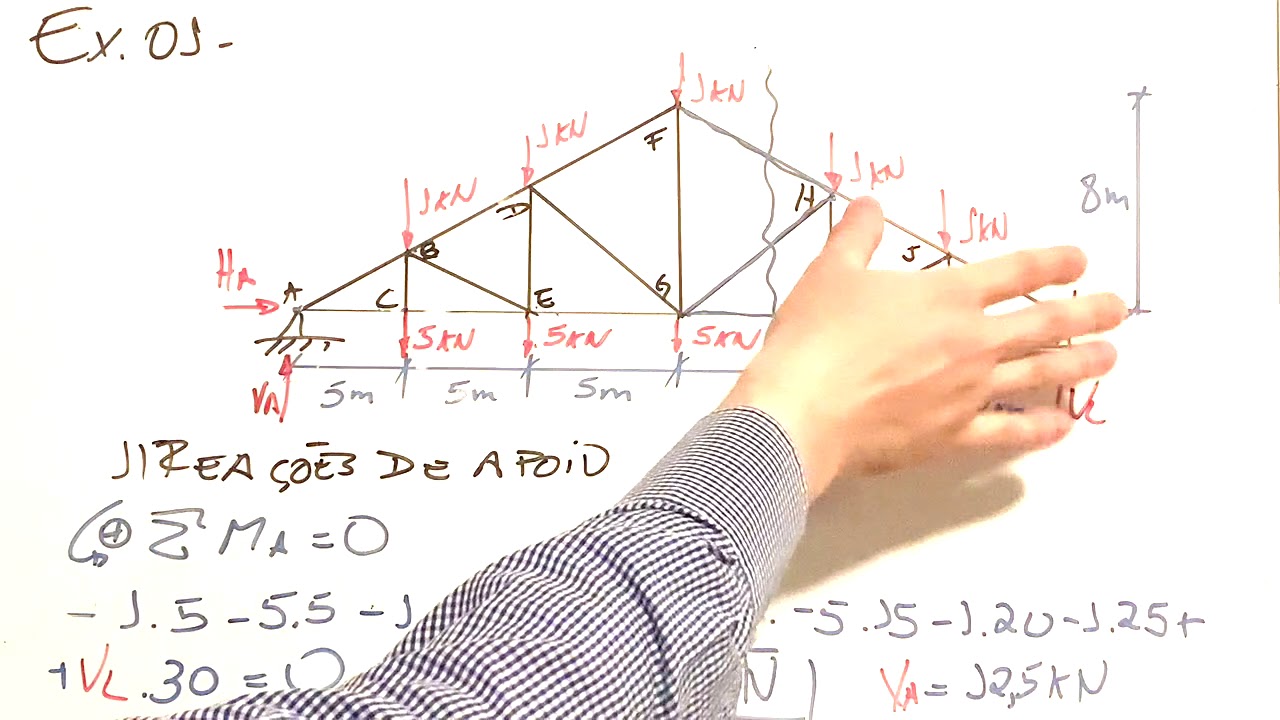 Ex. 01-
1KN
F
1KN
1KN
H
1KN
8m
D
1KN
B
J
1KN
HA
A
C
E
G
5KN
5KN
5KN
VA
5m
5m
5m
VL
1) REAÇÕES DE APOIO
⊕ Σ MA = 0
- 1.5 - 5.5 - 1
- 5.15 - 1.20 - 1.25 +
+VL.30 = 0
N
VA = 12,5 KN